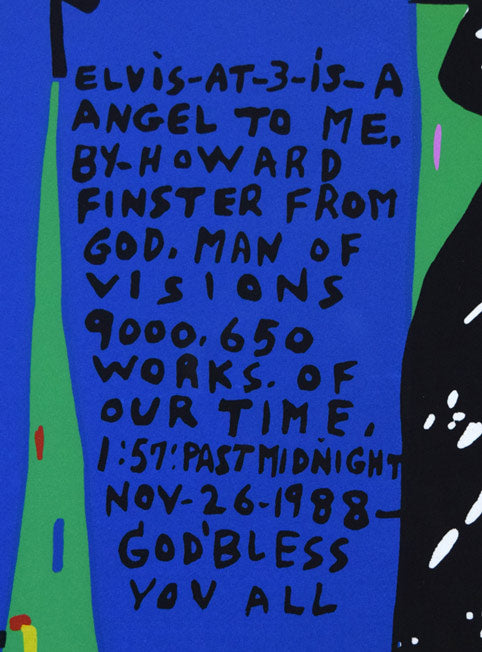 ELVIS-AT-3-IS-A
ANGEL TO ME.
BY-HOWARD
FINSTER FROM
GOD. MAN OF
VISIONS
9000.650
WORKS. OF
OUR TIME.
1:57:PAST MIDNIGHT
NOV-26-1988-
GOD'BLESS
YOU ALL